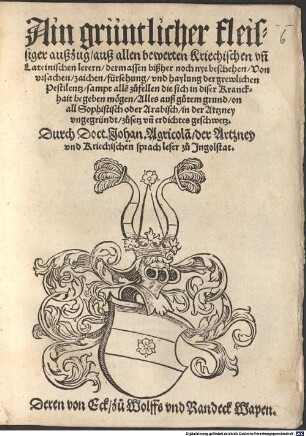 Ain grüntlicher fleis-
siger außzug/auß allen bewerten Kriechischen vn̄
Lateinischen lerern/dermassen bißher noch nye beschehen/Von
vrsachen/zaichen/fürsehung/vnd haylung der grewlichen
Pestilentz/sampt allē zůfellen die sich in diser Kranck-
hait begeben mögen/Alles auß gůtem grund/on
all Sophistisch oder Arabisch/in der Artzney
vngegründt/zůsetz vn̄ erdichtes geschwetz.
Durch Doct. Johan. Agricolā/der Artzney
vnd Kriechischen sprach leser zů Ingolstat.
6
Deren von Eck/zů Wolffs vnd Randeck Wapen.